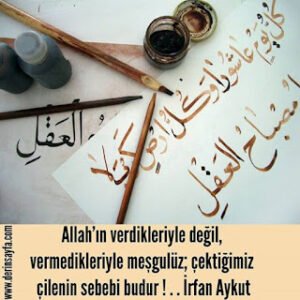 كل يوم عاشورا وكل ارض كربلا
مصباح العقل
العقل
www.derinsayfa.com
Allah'ın verdikleriyle değil,
vermedikleriyle meşgulüz; çektiğimiz
çilenin sebebi budur ! . . İrfan Aykut